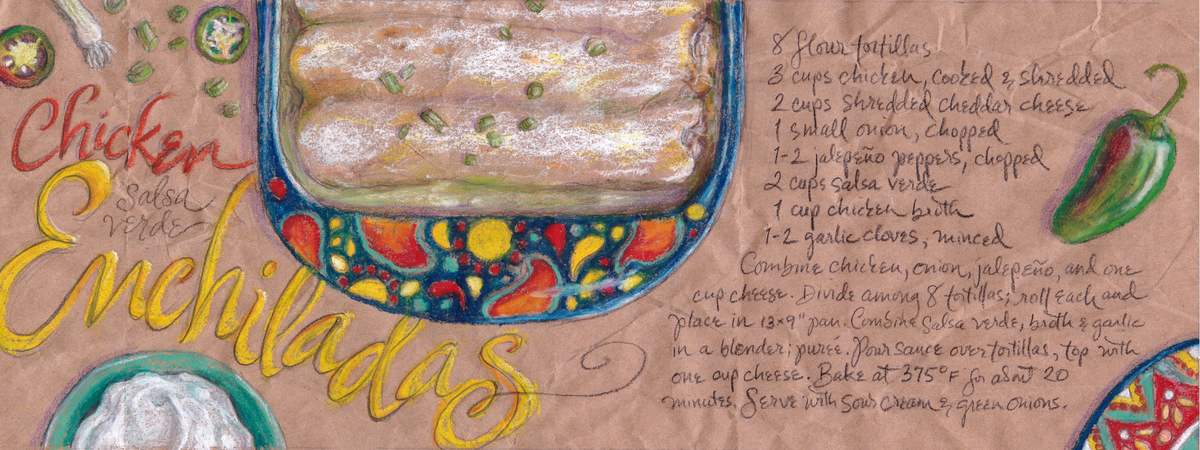 Chicken
Salsa
verde
Enchiladas
8 flour tortillas
3 cups chicken, cooked & shredded
2 cups shredded cheddar cheese
1 small onion, chopped
1-2 jalepeño peppers, chopped
2 cups salsa verde
1 cup chicken broth
1-2 garlic cloves, minced
Combine chicken, onion, jalepeño, and one
cup cheese. Divide among 8 tortillas; roll each and
place in 13x9" pan. Combine salsa verde, broth & garlic
in a blender; pureé. Pour sauce over tortillas, top with
one cup cheese. Bake at 375°F for about 20
minutes. Serve with sour cream & green onions.